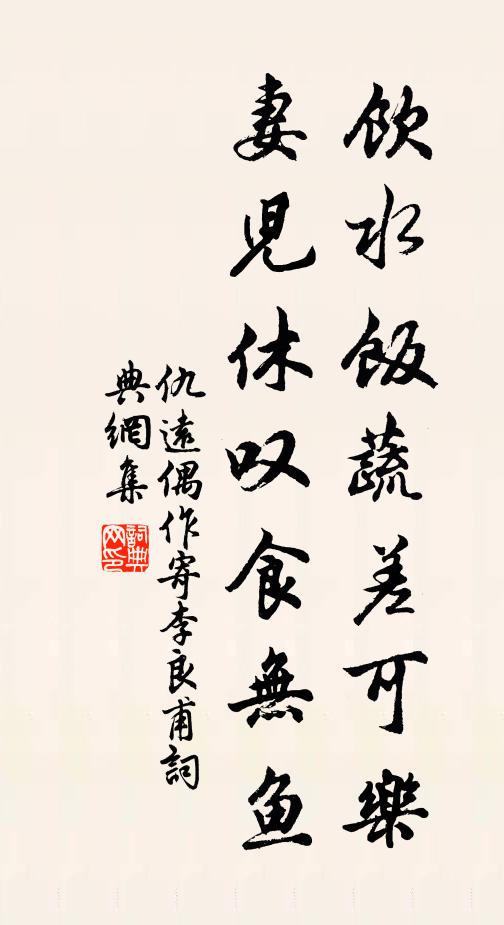 飲水飯蔬差可樂
妻児休叹食無鱼
仇遠偶作寄李良甫詞
典網集
詞典网印